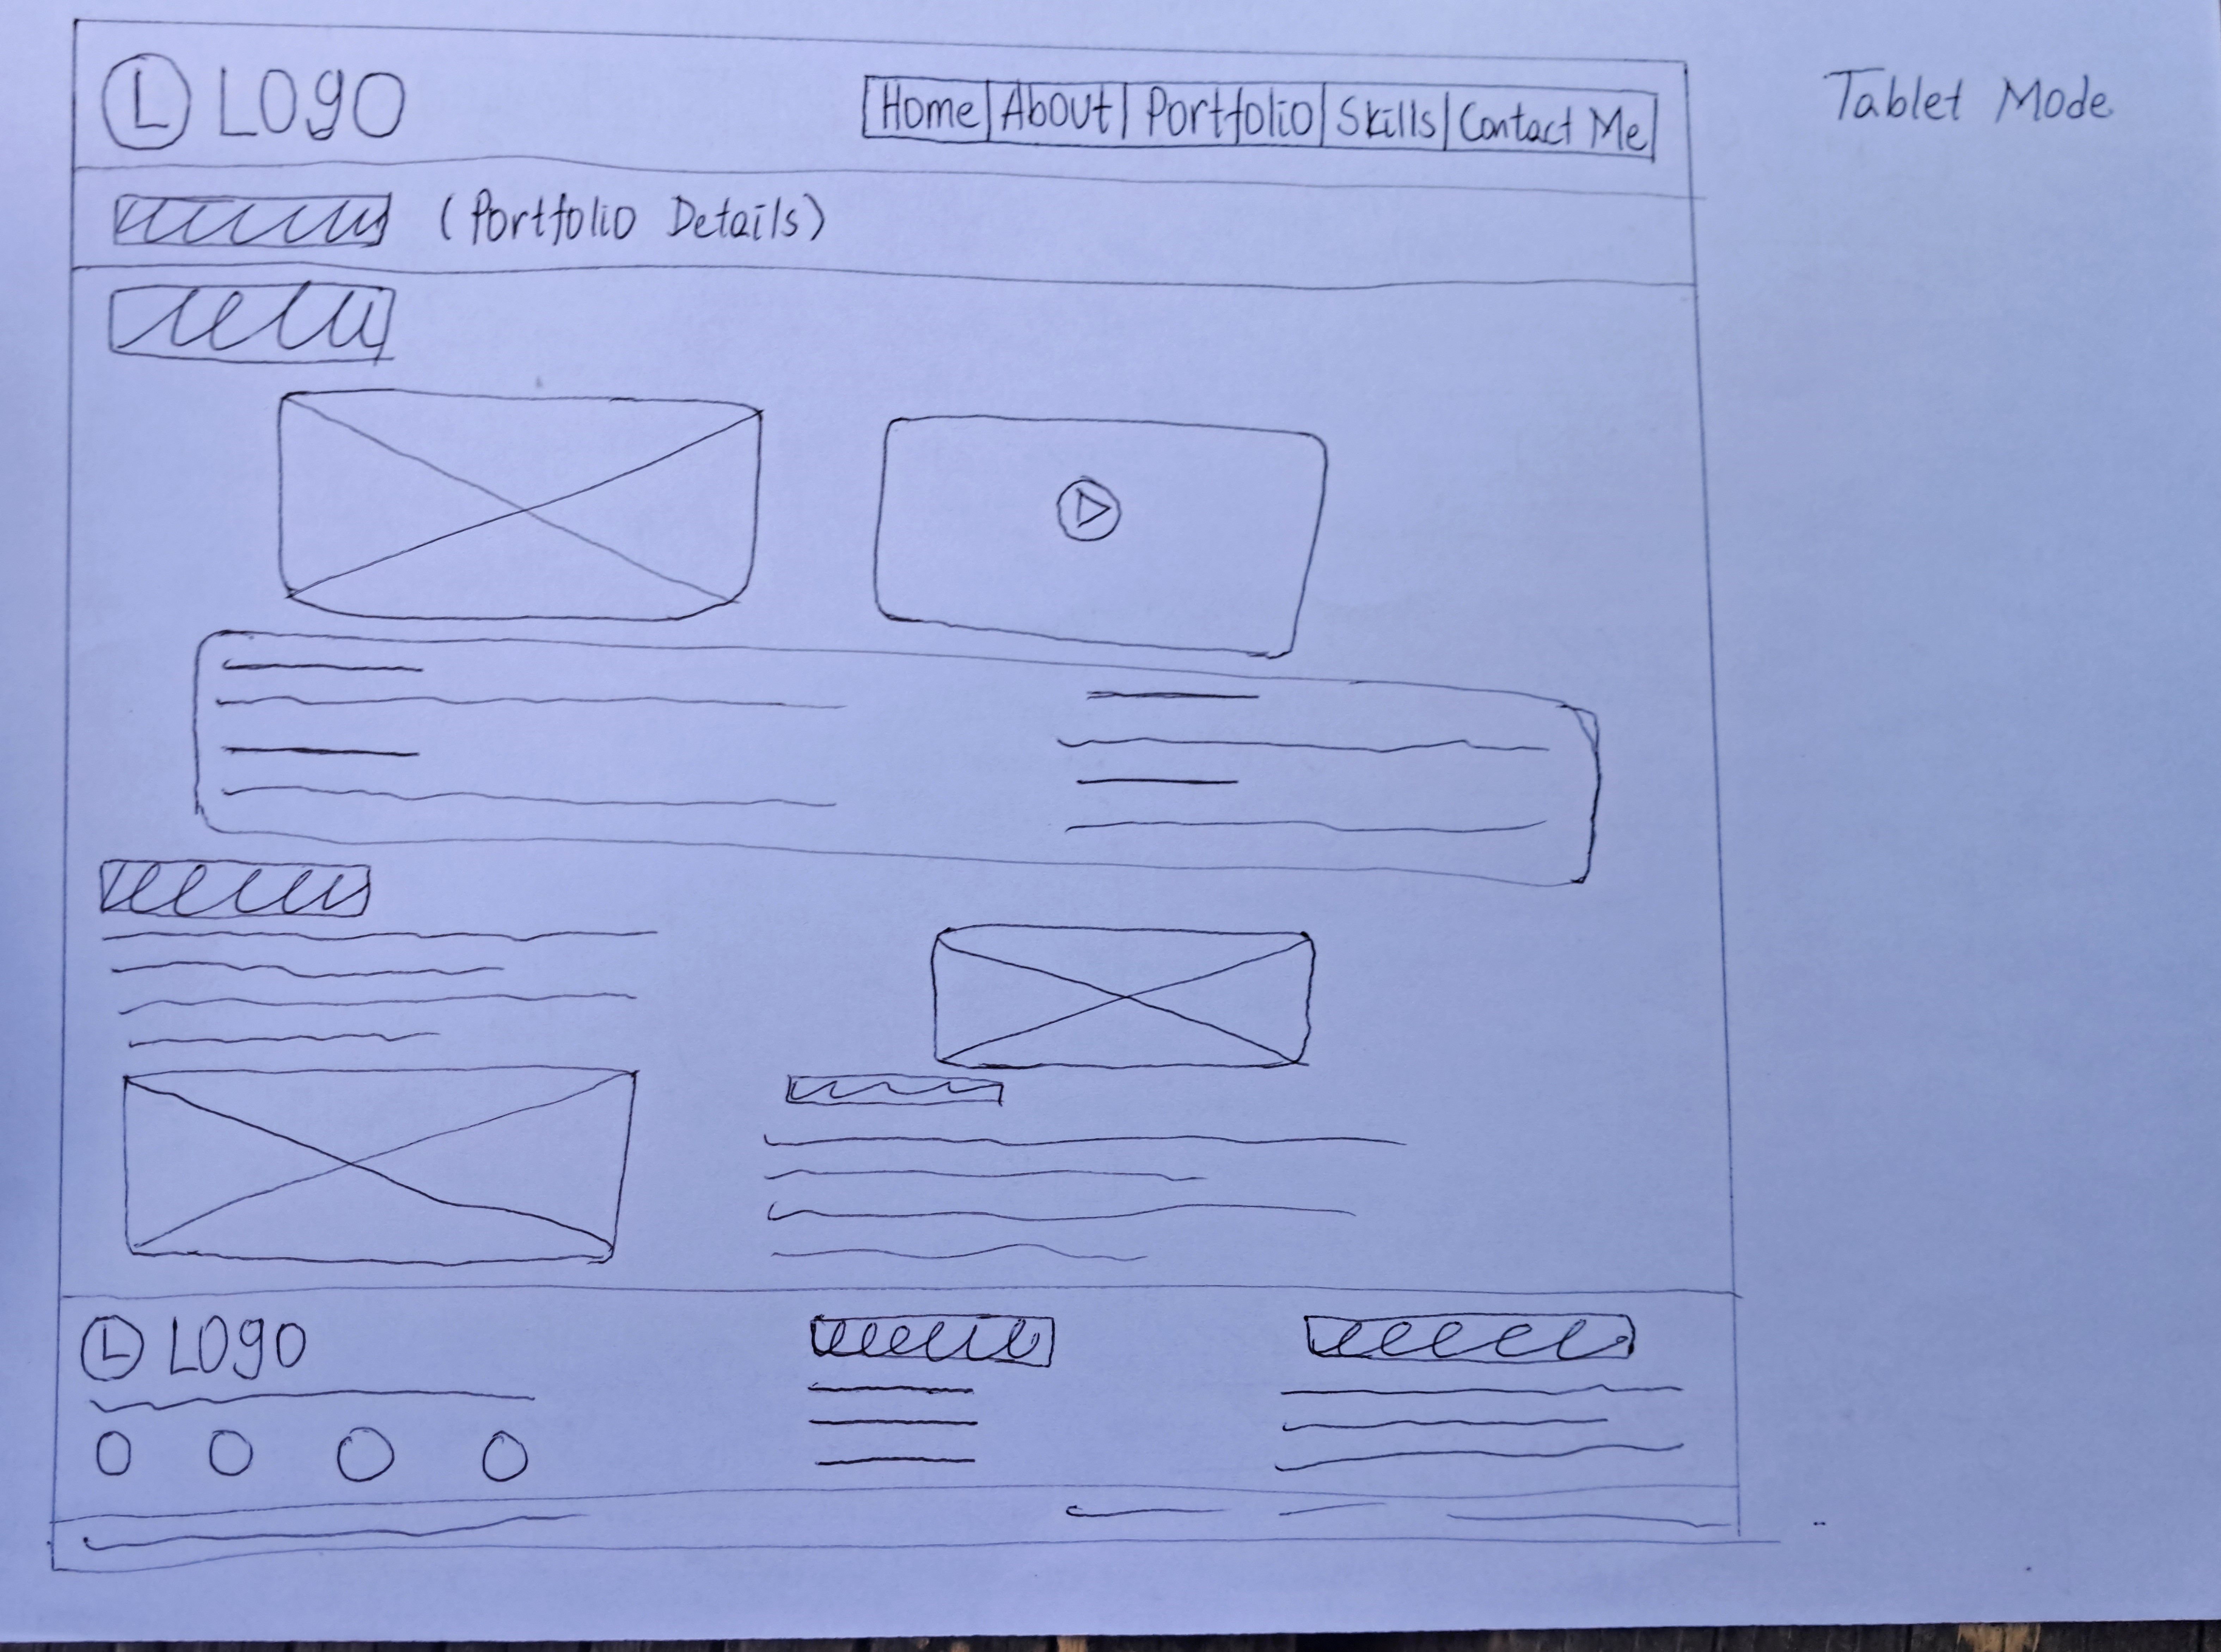 L LOgO
Home About Portfolio Skills Contact Me
Tablet Mode
(Portfolio Details)
L LOgO